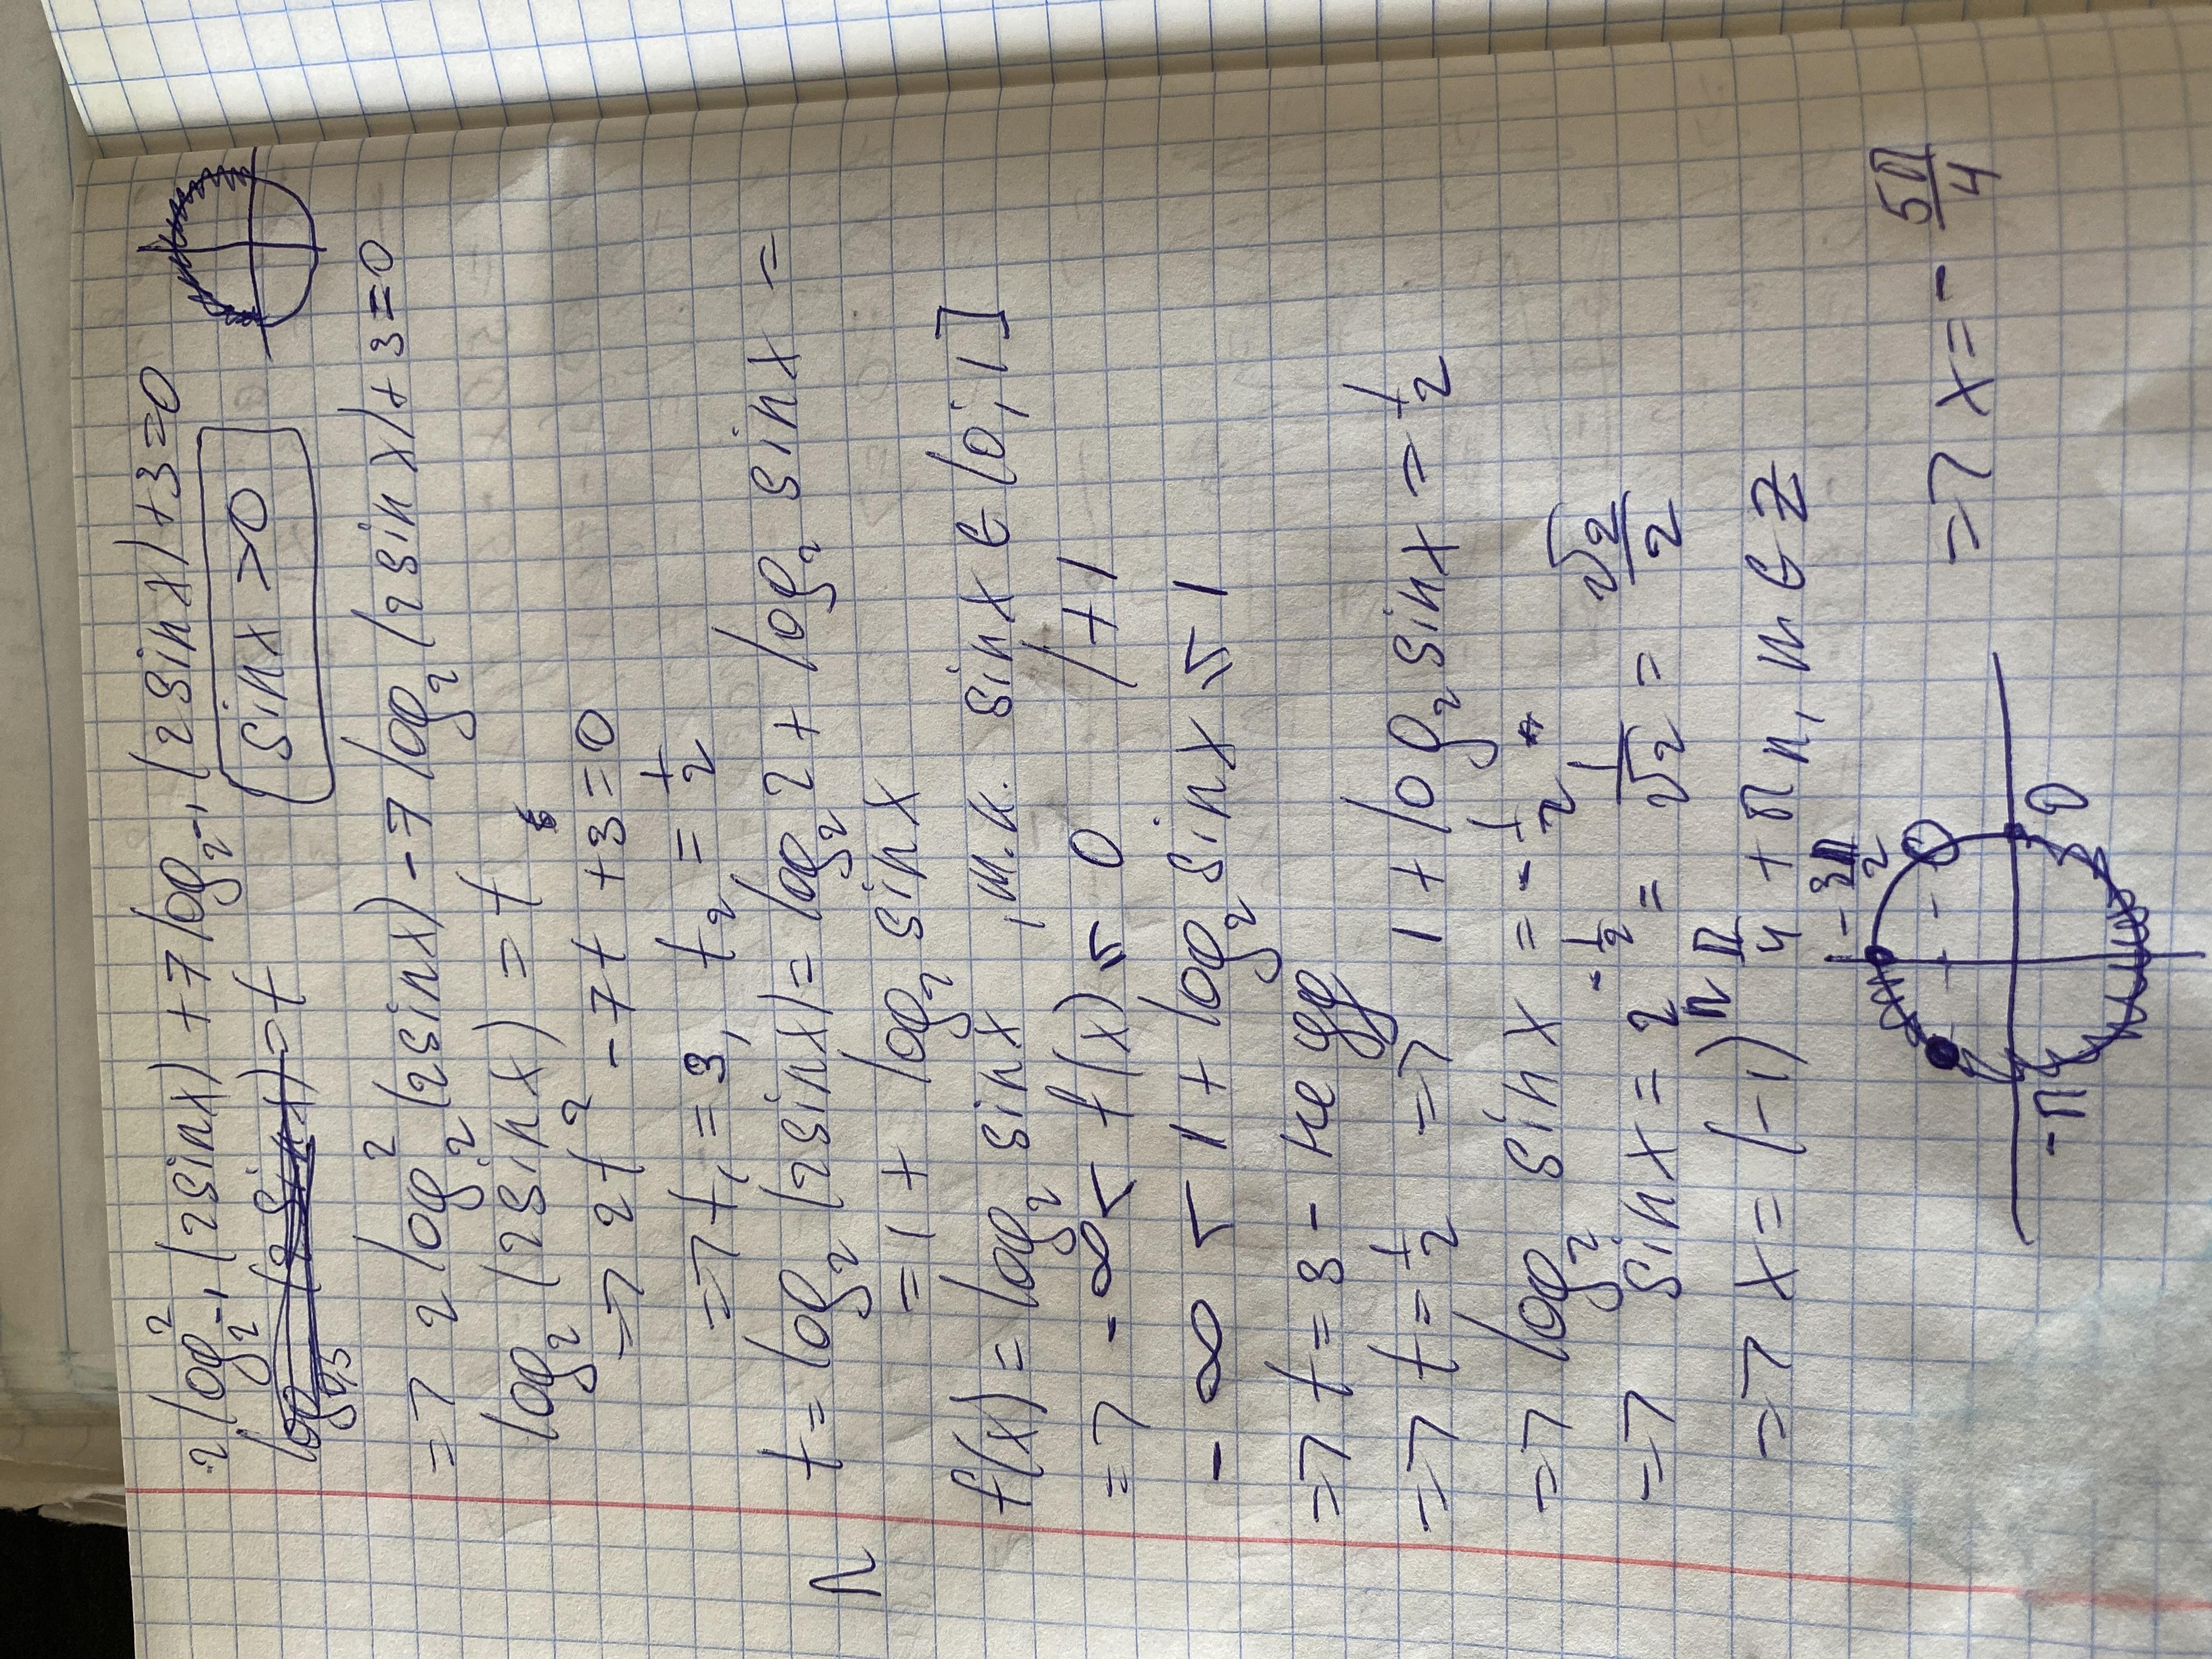 2 log²_{2^{-1}} (2 sin x) + 7 log_{2^{-1}} (2 sin x) + 3 = 0
sin x > 0
=> 2 log₂² (2 sin x) - 7 log₂ (2 sin x) + 3 = 0
log₂ (2 sin x) = t
=> 2t² - 7t + 3 = 0
=> t₁ = 3, t₂ = 1/2
t = log₂ (2 sin x) = log₂ 2 + log₂ sin x =
= 1 + log₂ sin x
f(x) = log₂ sin x, т.к. sin x ∈ (0; 1]
=> -∞ < f(x) ≤ 0 /+1
-∞ < 1 + log₂ sin x ≤ 1
=> t = 3 - не уд
=> t = 1/2 => 1 + log₂ sin x = 1/2
=> log₂ sin x = -1/2
=> sin x = 2^{-1/2} = 1/√2 = √2/2
=> x = (-1)ⁿ π/4 + πn, n ∈ Z
-3π/2
-π
0
=> x = -5π/4